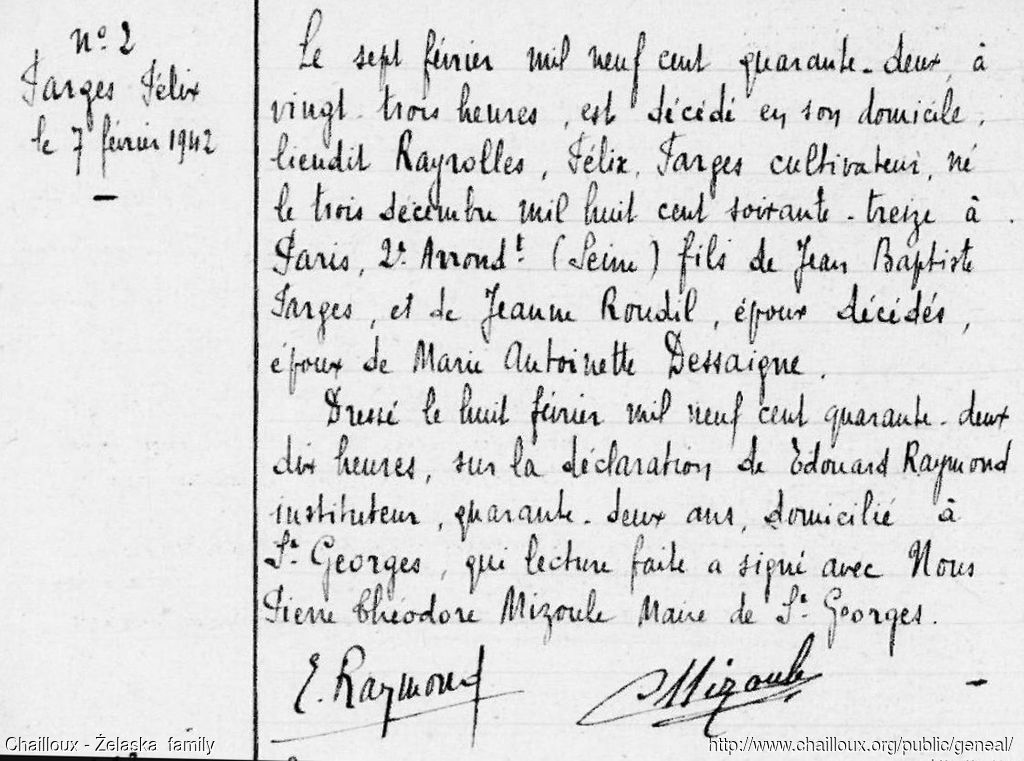 n° 2
Farges Félix
le 7 février 1942
Le sept février mil neuf cent quarante-deux, à
vingt-trois heures, est décédé en son domicile,
lieudit Rayrolles, Félix, Farges cultivateur, né
le trois décembre mil huit cent soixante-treize à
Paris, 2e Arrondt (Seine) fils de Jean Baptiste
Farges, et de Jeanne Roudil, époux décédés,
époux de Marie Antoinette Dessaigne.
Dressé le huit février mil neuf cent quarante-deux
dix heures, sur la déclaration de Edouard Raymond
instituteur, quarante-deux ans, domicilié à
St Georges, qui lecture faite a signé avec Nous
Pierre Théodore Mizoule Maire de St Georges.
E. Raymond
Mizoule
Chailloux - Żelaska family
http://www.chailloux.org/public/geneal/